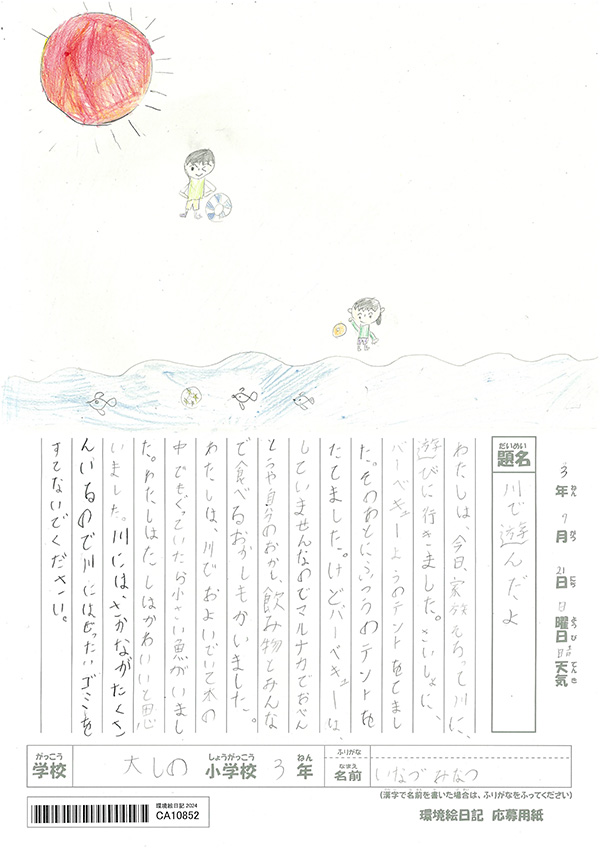 3年7月21日日曜日晴天気
ねん がつ にち ようび てんき
だいめい
題名
川で遊んだよ
わたしは、今日、家族そろって川に、
遊びに行きました。さいしょに、
バーベキューようのテントをたてまし
た。そのあとにふつうのテントを
たてました。けどバーベキューは、
していませんなのでマルナカでおべん
とうや自分のおかし、飲み物とみんな
で食べるおかしもかいました。
わたしは、川でおよいでいて水の
中でもぐっていたら小さい魚がいまし
た。わたしはたしはかわいいと思
いました。川には、さかながたくさ
んいるので川にはぜったいゴミを
すてないでください。
がっこう
学校
大しの
しょうがっこう
小学校
3
ねん
年
ふりがな
なまえ
名前
いなづみなつ
(漢字で名前を書いた場合は、ふりがなをふってください)
環境絵日記 2024
CA10852
環境絵日記 応募用紙